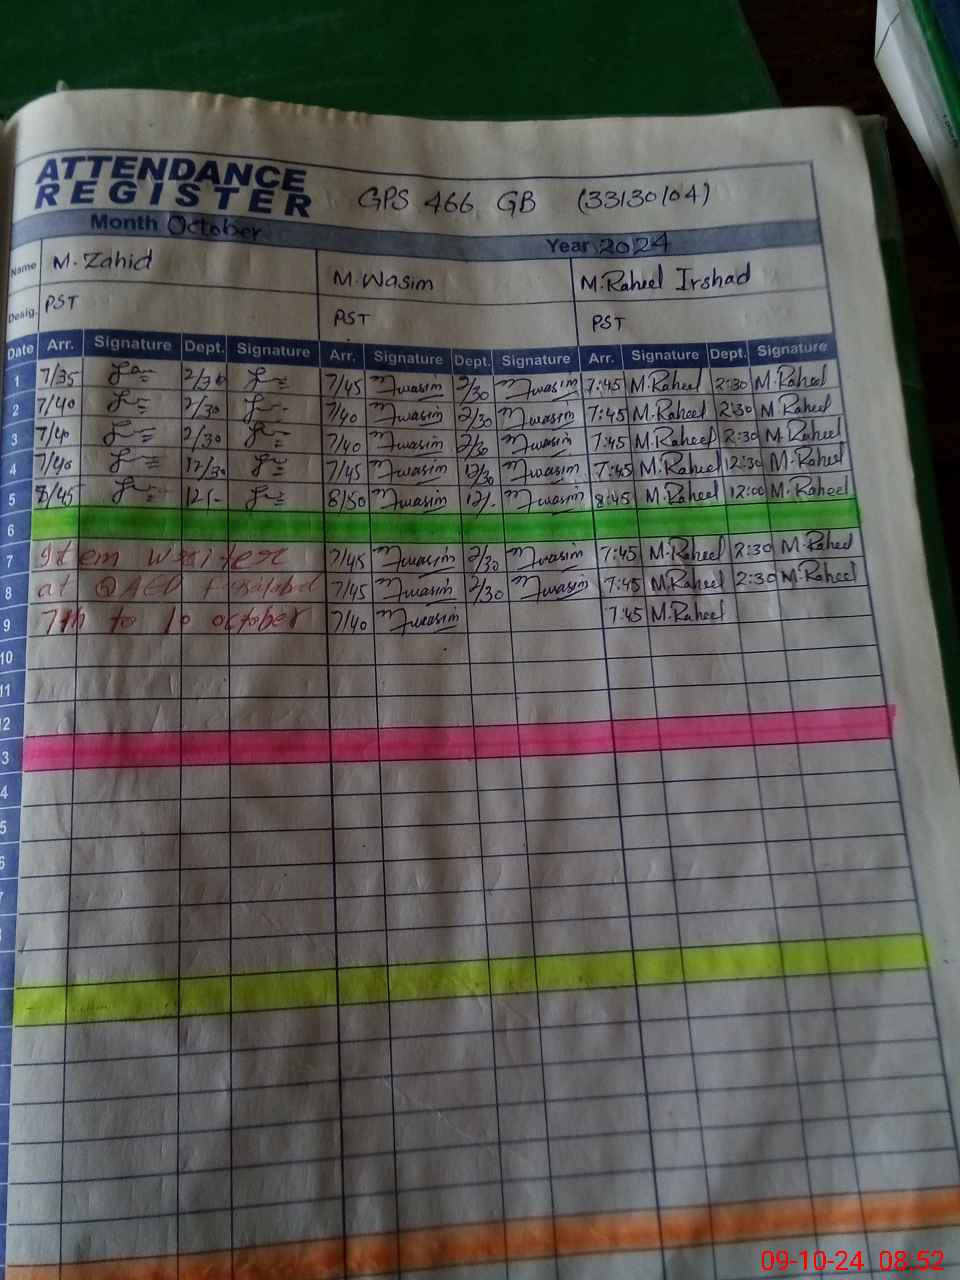 ATTENDANCE
REGISTER GPS 466 GB (33130104)
Month October Year 2024
Name M. Zahid M. Wasim M. Raheel Irshad
Desig. PST PST PST
Date Arr. Signature Dept. Signature Arr. Signature Dept. Signature Arr. Signature Dept. Signature
1 7/35 2/30 7/45 Mwasim 2/30 Mwasim 7:45 M.Raheel 2:30 M.Raheel
2 7/40 2/30 7/40 Mwasim 2/30 Mwasim 7:45 M.Raheel 2:30 M.Raheel
3 7/40 2/30 7/40 Mwasim 2/30 Mwasim 7:45 M.Raheel 2:30 M.Raheel
4 7/40 12/30 7/45 Mwasim 12/30 Mwasim 7:45 M.Raheel 12:30 M.Raheel
5 8/45 12/- 8/50 Mwasim 12/- Mwasim 8:45 M.Raheel 12:00 M.Raheel
6
7 7/45 Mwasim 2/30 Mwasim 7:45 M.Raheel 2:30 M.Raheel
8 at QAED 7/45 Mwasim 2/30 Mwasim 7:45 M.Raheel 2:30 M.Raheel
9 7th to 10 october 7/40 Mwasim 7:45 M.Raheel
10
11
2
3
4
5
6
09-10-24 08.52